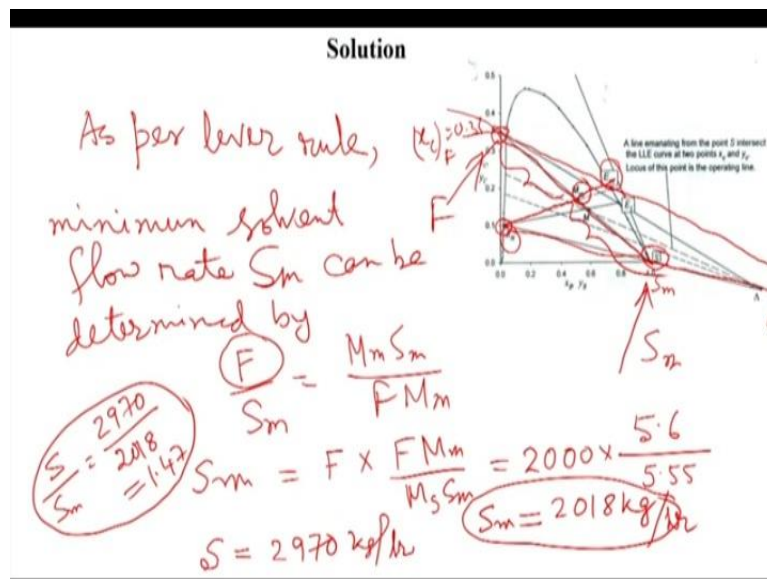 Solution
As per lever rule,
minimum solvent
flow rate Sm can be
determined by
F/Sm = MmSm/FMm
Sm = F × FMm/MsSm = 2000 × 5.6/5.55
Sm = 2018 kg/hr
S = 2970 kg/hr
S/Sm = 2970/2018 = 1.47
(xc)F = 0.35
F
A line emanating from the point S intersect
the LLE curve at two points xc and yc.
Locus of this point is the operating line.
0.5
0.4
0.2
0.1
0.0
0.0 0.2 0.4 0.6 0.8
xB, yB
yc
Sm
Δ